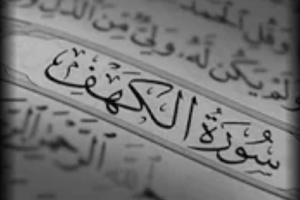 وَقُلِ الْحَمْدُ
وَلَمْ يَكُن لَّهُ وَلِيٌّ مِّنَ الذُّلِّ
سُورَةُ الْكَهْفِ
الرَّحْمَٰنِ